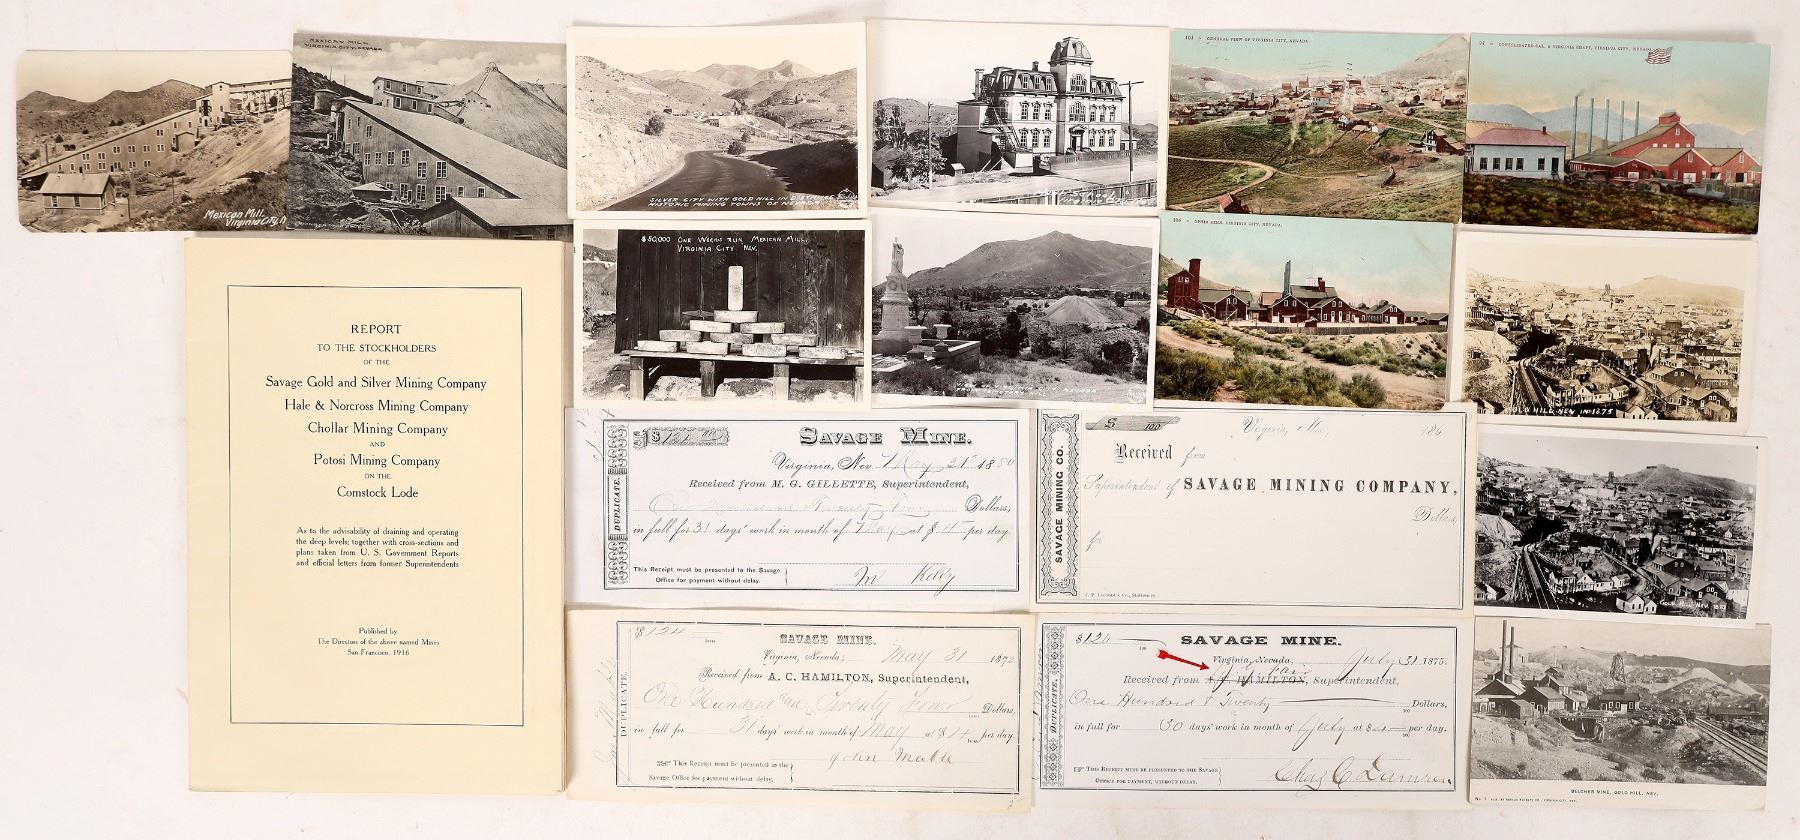 Mexican Mill.
Virginia City, N
MEXICAN MILL,
VIRGINIA CITY, NEVADA
SILVER CITY WITH GOLD HILL IN DISTANCE
HISTORIC MINING TOWNS OF NEVADA
103 - GENERAL VIEW OF VIRGINIA CITY, NEVADA.
97 - CONSOLIDATED CAL. & VIRGINIA SHAFT, VIRGINIA CITY, NEVADA
$50,000 ONE WEEKS RUN MEXICAN MILL,
VIRGINIA CITY NEV.
VIRGINIA CITY, NEVADA
106 - OPHIR MINE, VIRGINIA CITY, NEVADA.
GOLD HILL NEV IN 1875
REPORT
TO THE STOCKHOLDERS
OF THE
Savage Gold and Silver Mining Company
Hale & Norcross Mining Company
Chollar Mining Company
AND
Potosi Mining Company
ON THE
Comstock Lode
As to the advisability of draining and operating
the deep levels; together with cross-sections and
plans taken from U. S. Government Reports
and official letters from former Superintendents
Published by
The Directors of the above named Mines
San Francisco, 1916
DUPLICATE.
SAVAGE MINE.
Virginia, Nov. May 31 1880
Received from M. G. GILLETTE, Superintendent,
One Hundred Twenty Four Dollars,
in full for 31 days' work in month of May at $ 4 per day.
This Receipt must be presented to the Savage
Office for payment without delay.
M Kelly
SAVAGE MINING CO.
$ 100
Virginia, 186
Received from
Superintendent of SAVAGE MINING COMPANY,
Dollars,
for
GOLD HILL NEV.
DUPLICATE.
$124 100
SAVAGE MINE.
Virginia, Nevada, May 31 1872
Received from A. C. HAMILTON, Superintendent,
One Hundred and Twenty Four Dollars,
in full for 31 days' work in month of May at $4 per day.
This Receipt must be presented to the
Savage Office for payment without delay.
John Mable
DUPLICATE.
$120 100
SAVAGE MINE.
Virginia, Nevada, July 31 1875.
Received from A. C. HAMILTON, Superintendent,
One Hundred & Twenty Dollars,
in full for 30 days' work in month of July at $4 per day.
THIS RECEIPT MUST BE PRESENTED TO THE SAVAGE
OFFICE FOR PAYMENT, WITHOUT DELAY.
BELCHER MINE, GOLD HILL, NEV.